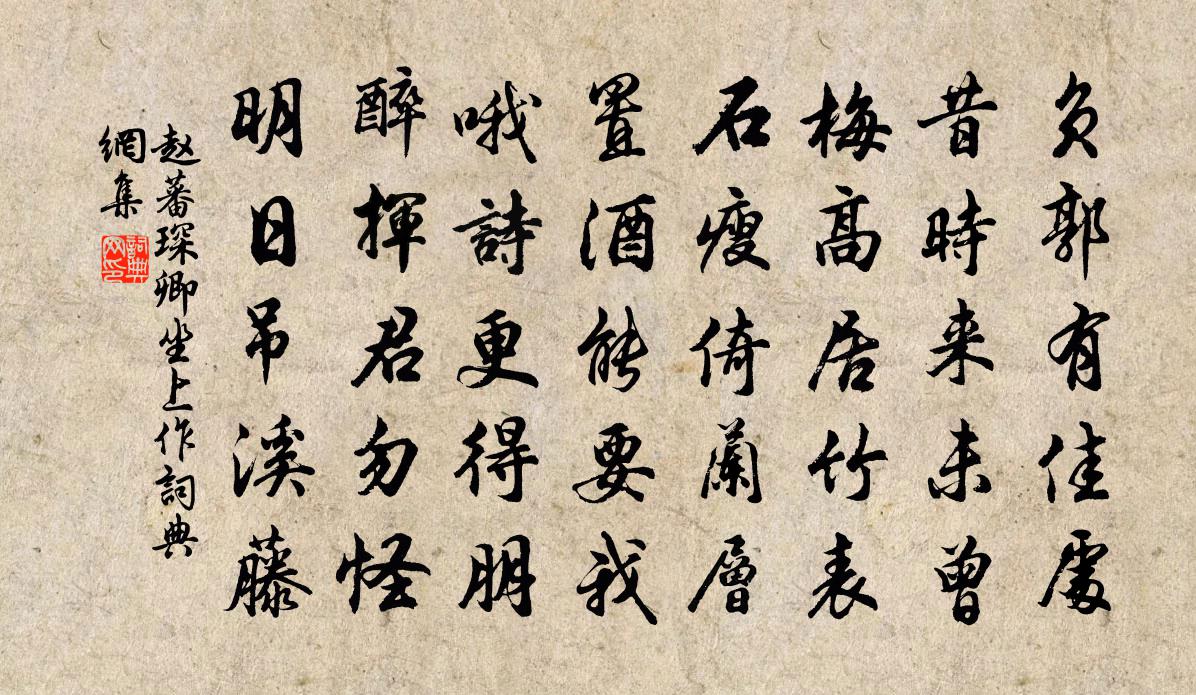 负郭有佳處
昔時来未曾
梅高居竹表
石瘦倚蘭層
置酒能要我
哦詩更得朋
醉揮君勿怪
明日吊溪藤
赵蕃琛卿坐上作詞典
網集
詞典
网印